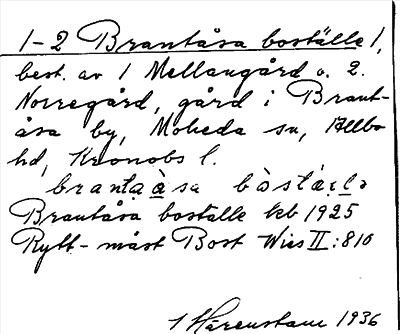 1-2 Brantåsa boställe 1,
best. av 1 Mellangård o. 2.
Norregård, gård i Brant-
åsa by, Moheda sn, Allbo
hd, Kronobs l.
brantaàsa bòstäl̥ə
Brantåsa boställe kb 1925
Rytt-mäst Bost Wies II:810
Härenstam 1936